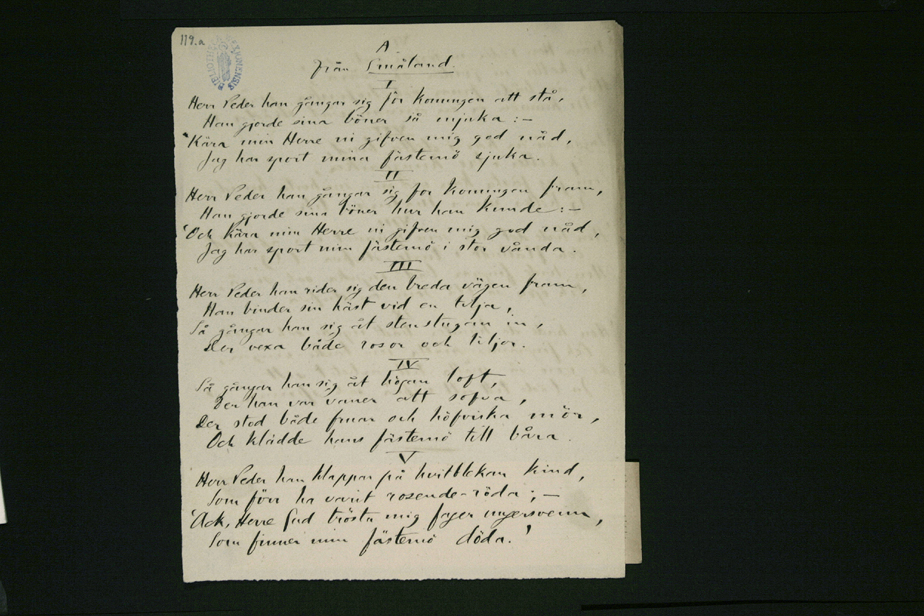 119.a
A
från Småland.
I
Herr Peder han gångar sig för konungen att stå,
Han gjorde sina böner så mjuka:—
"Kära min Herre ni gifven mig god nåd,
Jag har sport mina fästemö sjuka.
II
Herr Peder han gångar sig för konungen fram,
Han gjorde sina böner hur han kunde:—
"Och Kära min Herre ni gifven mig god nåd,
Jag har sport min fästemö i stor vånda.
III
Herr Peder han rider sig den breda vägen fram,
Han binder sin häst vid en tilja,
Så gångar han sig åt stenstugan in,
Der vexa både rosor och liljor.
IV
Så gångar han sig åt högan loft,
Der han var vaner att sofva,
Der stod både fruar och höfviska mör,
Och klädde hans fästemö till båra.
V
Herr Peder han klappar på hvitblekan kind,
Som förr ha varit rosende-röda;—
"Ack, Herre Gud trösta mig fager ungersvenn,
Som finner min fästemö döda!